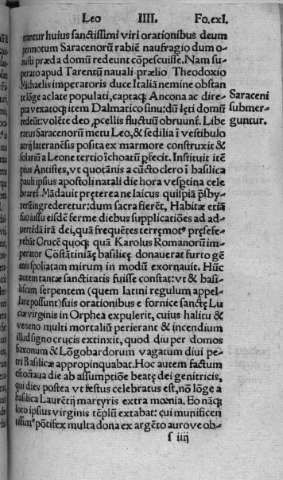 Leo IIII. Fo.cxi.
rantur huius sanctissimi viri orationibus deum
Saracenorũ rabiẽ naufragio dum o-
præda domũ redeunt cõpescuisse. Nam su-
perato apud Tarentũ nauali prælio Theodoxio
Michaelis imperatoris duce Italiã nemine obstan
te lõge aclate populati, captaq; Ancona ac dire-
pta vexatoq; item Dalmatico sinu: dũ lęti domũ
redeũt: volẽte deo, pcellis fluctuũ obruunt̃. Libe
Saraceni
submer-
guntur.
ratus Saracenorũ metu Leo, & sedilia ĩ vestibulo
aędĩ lateranẽsis posita ex marmore construxit &
solariũ a Leone tertio ĩchoatũ pfecit. Instituit itẽ
pius Antistes, vt quotãnis a cũcto clero ĩ basilica
pauli ipsius apostoli natali die hora vespertina cele
Mãdauit præterea ne laicus quispiã
ingrederetur: dum sacra fierẽt, Habitæ etiã
suo iussu eisdẽ ferme diebus supplicatiões ad ad-
uertẽdã irã dei, quã frequẽtes terręmotꝰ
Crucẽ quoq; quã Karolus Romanorũ im-
perator Cõstãtiniãę basilicę donauerat furto gẽ
mis spoliatam mirum in modũ exornauit. Hũc
autem tantæ sanctitatis fuisse constat: vt & basi-
liscum serpentem (quem latini regulum appel-
lare possunt) suis orationibus e fornice sanctę Lu
cię virginis in Orphea expulerit, cuius halitu &
veneno multi mortaliũ perierant & incendium
illud signo crucis extinxit, quod diu per domos
Saxonum & Lõgobardorum vagatum diui pe-
tri Basilicæ appropinquabat. Hoc autem factum
octaua die ab assumptiõe beatę dei genitricis,
qui dies postea vt festus celebratus est, nõ lõge a
basilica Laurẽtij martyris extra mœnia. Eo nãq;
loco ipsius virginis tẽplũ extabat: cui munificẽti
põtifex multa dona ex argẽto auro veob-
s iiij